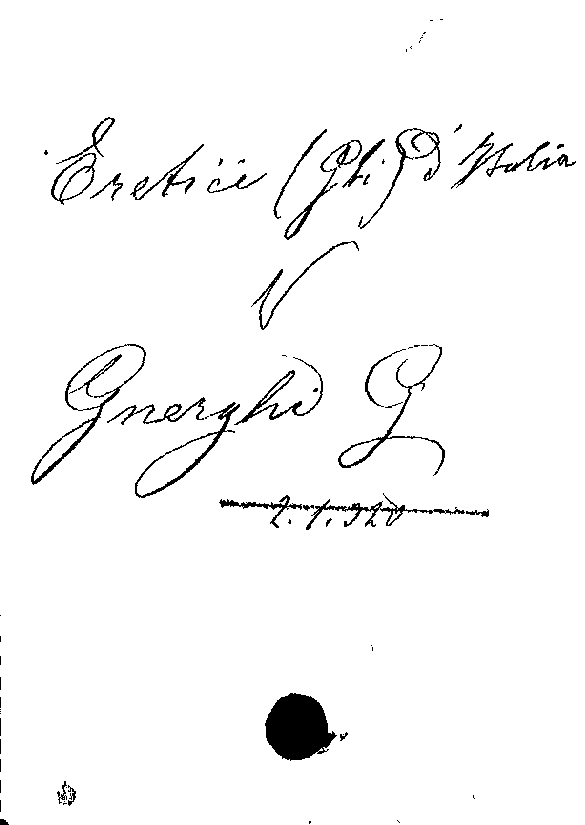 Eretici (Gli) d'Italia
V
Gnerghi G